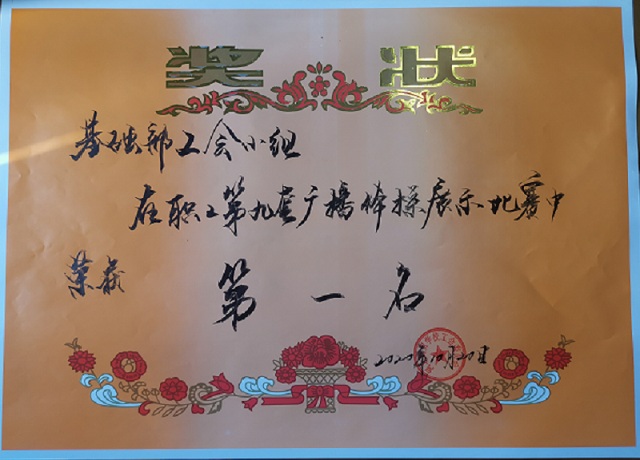 奖状
基础部工会小组
在职工第九套广播体操展示比赛中
荣获
第一名
2020年10月20日